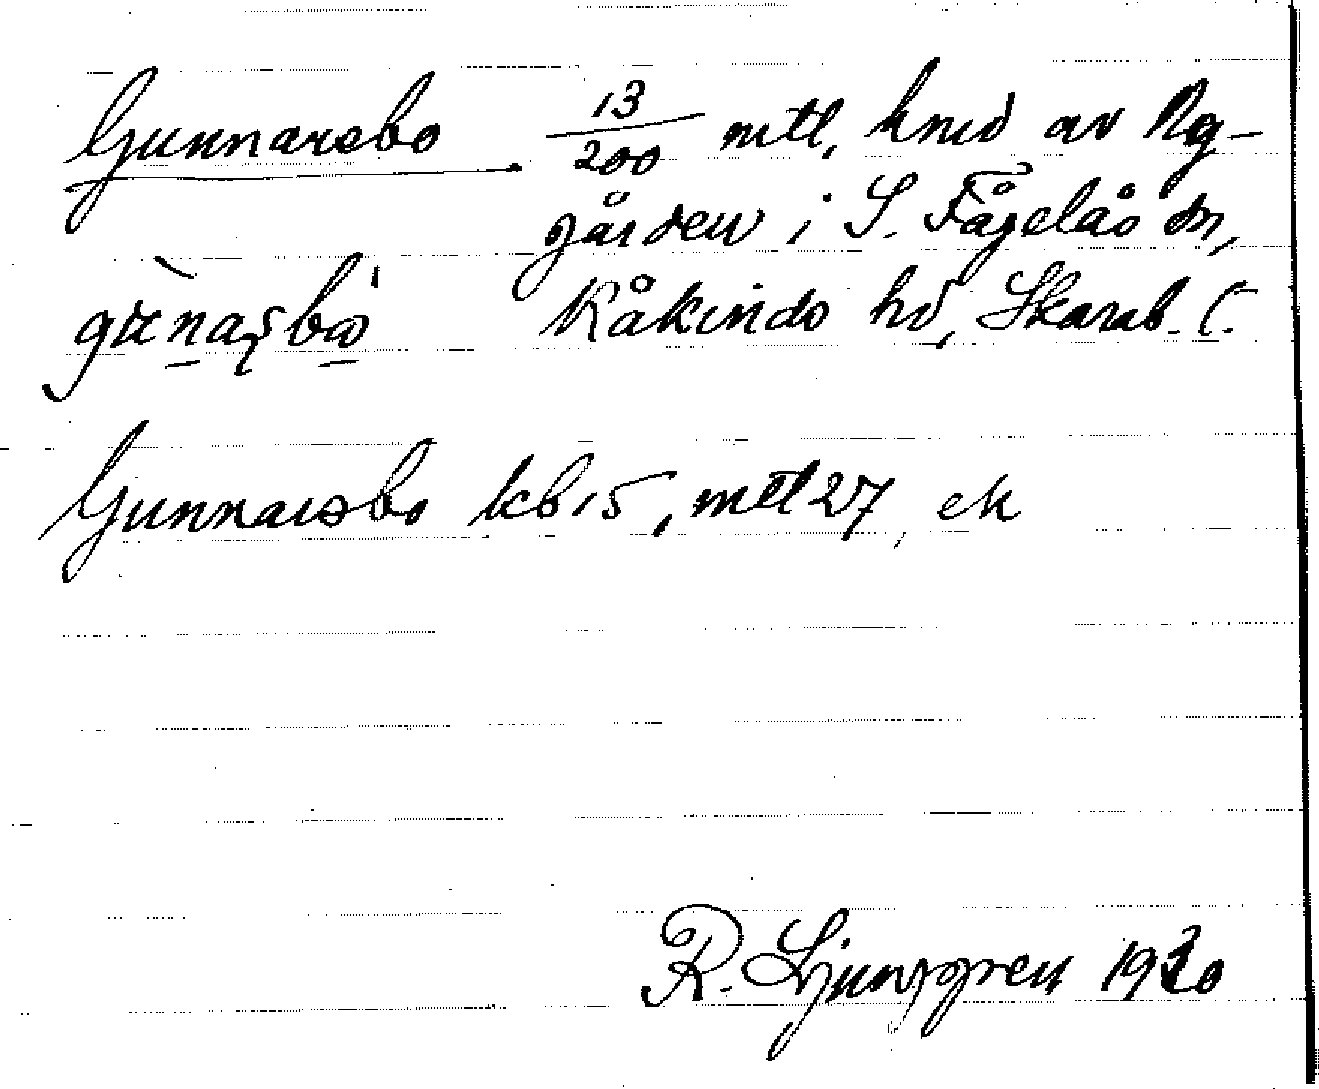 Gunnarsbo 13/200 mtl, hmd av Ny-
gården i S. Fågelås sn,
Kåkinds hd, Skarab. l.
Gunnarsbo kb 15, mtl 27, ek
R. Ljunggren 1930